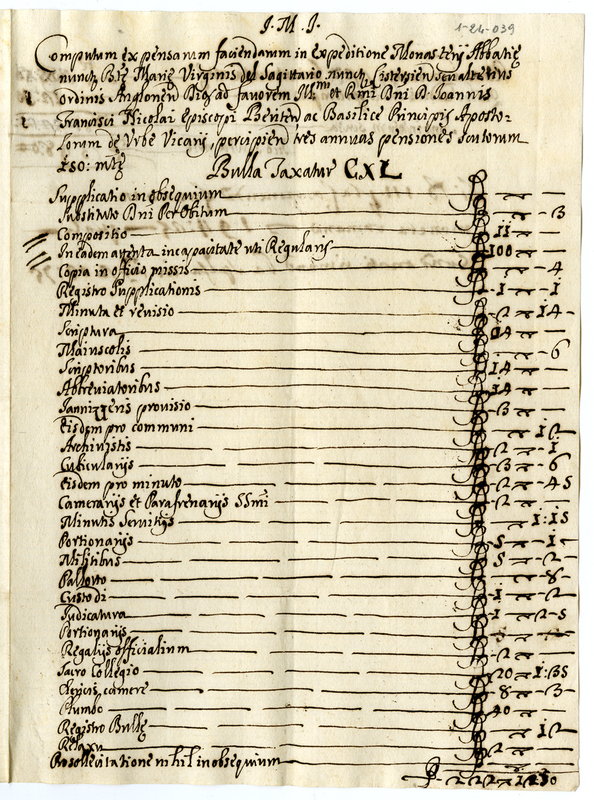 J. M. J.
1-24-039
Computum expensarum faciendarum in expeditione Monasterij Abbatię
nuncup. Btę Marię Virginis del Sagittario nuncup. Cistercien seu alterius
ordinis Anglonen Dioc. ad favorem Illmi et Rmi Dni D. Joannis
Francisci Nicolai Episcopi ac Basilice Principis Aposto-
lorum de Urbe Vicarij, percipien tres annuas pensiones scutorum
150: mtę
Bulla Taxatur CXL
Supplicatio in obsequium
Substituto Dni Per Obitum — 3
Compositio 11
In eadem incapacitate uti Regularis 100
Copia in officio missis — 4
Registro Supplicationis 1 — 1
Minuta et revisio 2 — 14
Scriptura 14
Maiuscolis — 6
Scriptoribus 14
Abbreviatoribus 14
Jannizzeris provisio 3
Eisdem pro communi — 12
Archivistis 2 — 1
Cubicularijs 3 — 6
Eisdem pro minuto 2 — 45
Camerarijs et Parafrenarijs SSmi 2
Minutis Servitijs 1:15
Portionarijs 5 — 1
Militibus 5 — 2
Palloto — 8
Custodi 1 — 2
Judicatura 1 — 2-5
Portionarijs
Regalijs officialium 2
Sacro Collegio 20 — 1:35
Clericis camere 8 — 3
Plumbo 40
Registro Bullę — 12
2
Pro sollecitatione nihil in obsequium
222